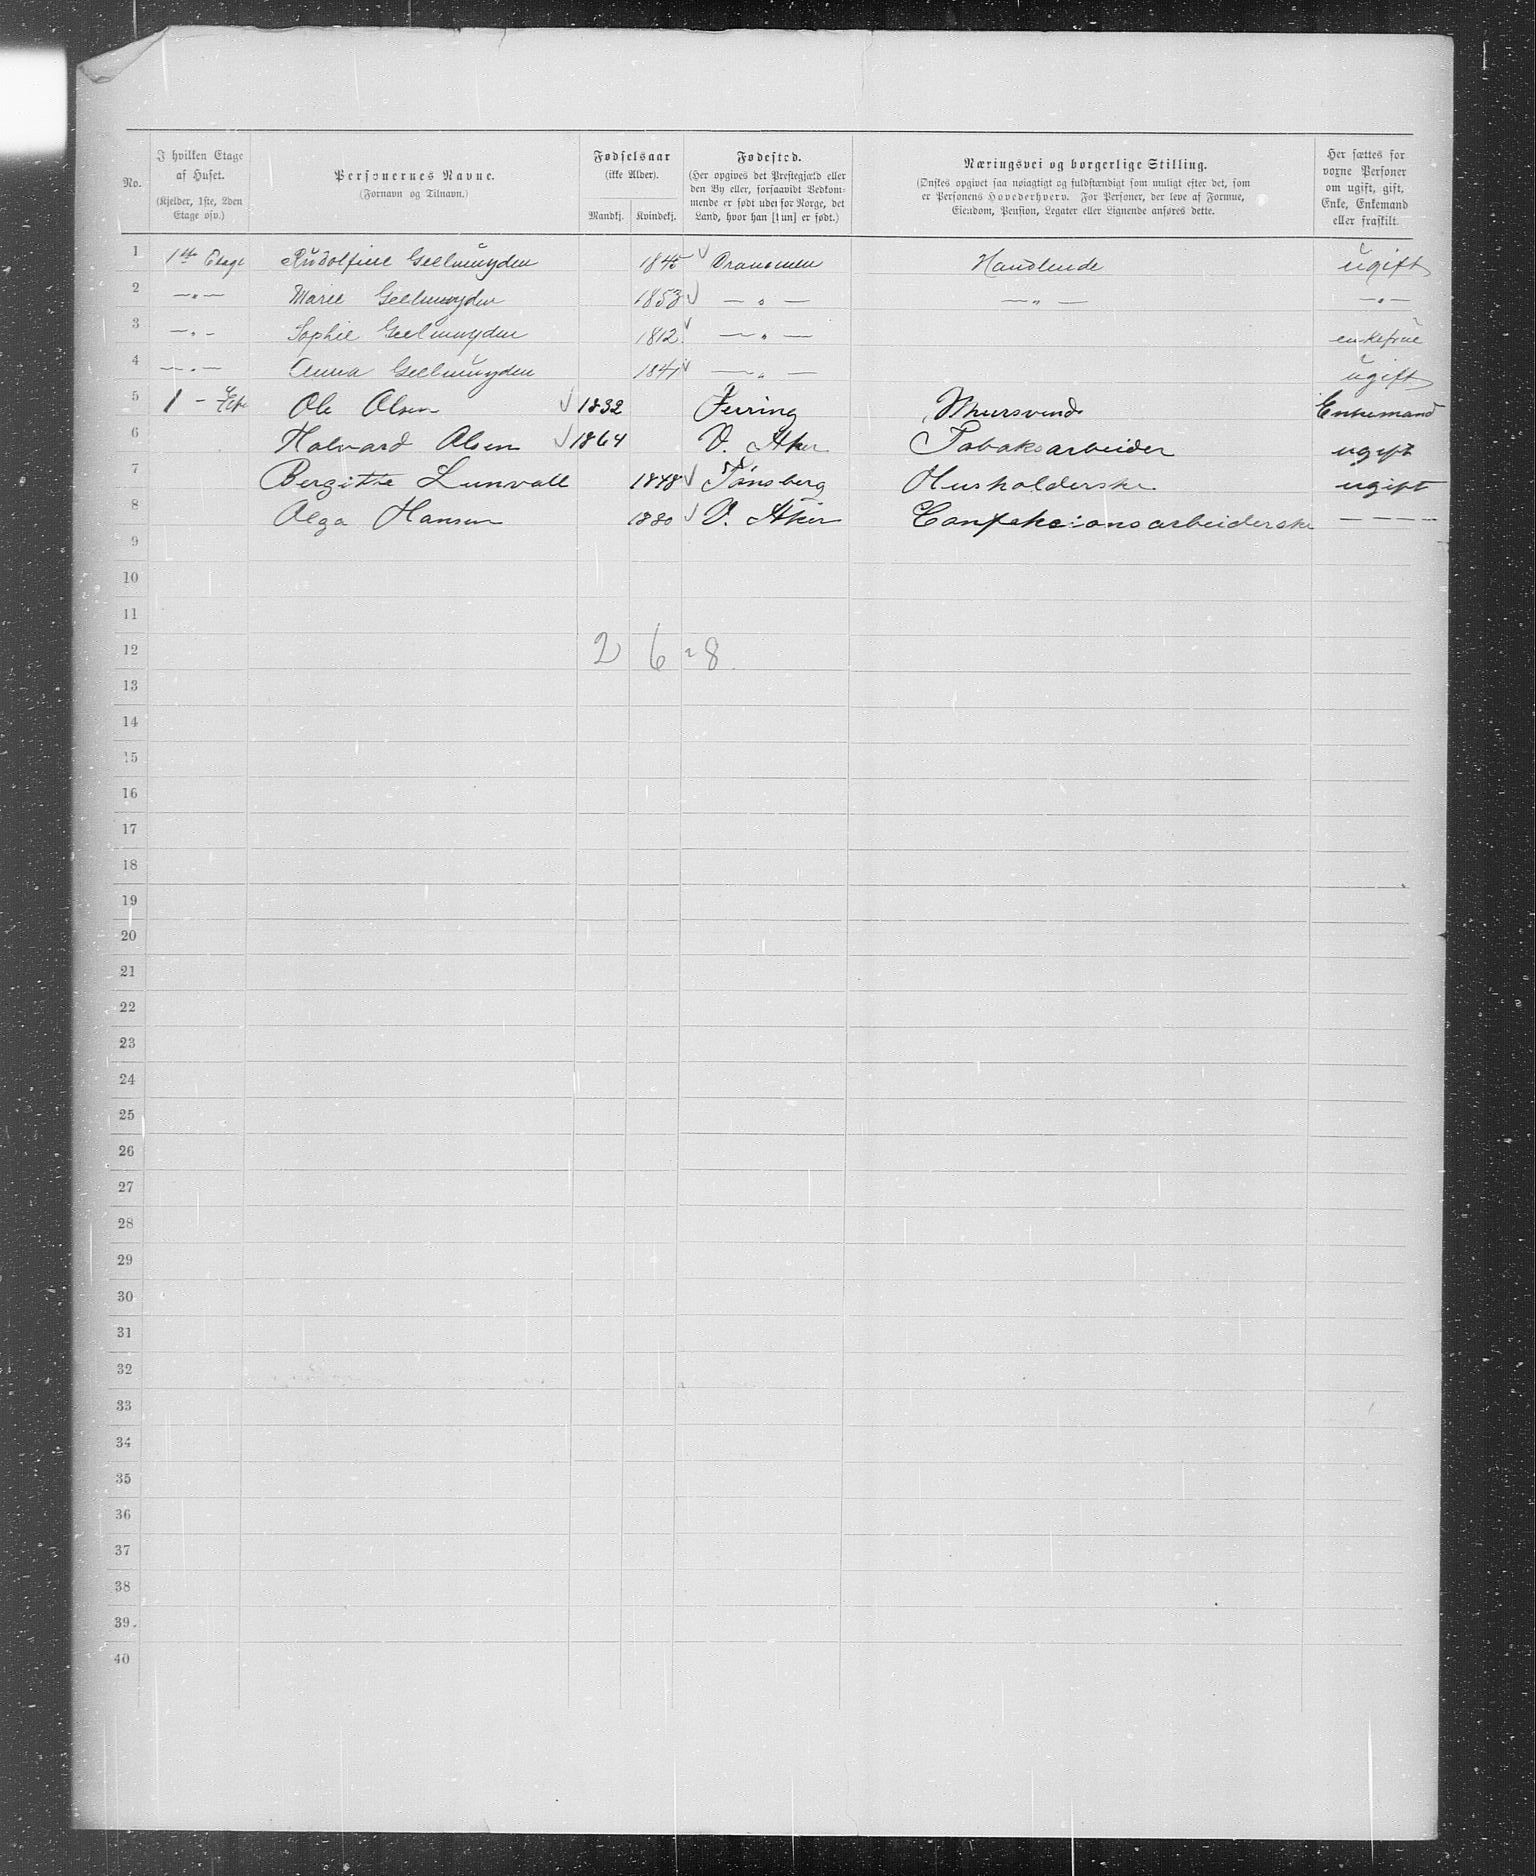 No. | I hvilken Etage af Huset. (Kjelder, 1ste, 2den Etage osv.) | Personernes Navne. (Fornavn og Tilnavn.) | Fødselsaar (ikke Alder). Mandkj. | Kvindekj. | Fødested. (Her opgives det Prestegjæld eller den By eller, forsaavidt Vedkommende er født udenfor Norge, det Land, hvor han [hun] er født.) | Næringsvei og borgerlige Stilling. (Ønskes opgivet saa nøiagtigt og fuldstændigt som muligt efter det, som er Personens Hovederhverv. For Personer, der leve af Formue, Eiendom, Pension, Legater eller Lignende anføres dette. | Her sættes for voxne Personer om ugift, gift, Enke, Enkemand eller fraskilt.
1 | 1ste Etage | Rudolfine Geelmuyden | 1845 | Drammen | Handlende | ugift
2 | — " — | Marie Geelmuyden | 1853 | — " — | — " — | — " —
3 | — " — | Sophie Geelmuyden | 1812 | — " — | enkefrue
4 | — " — | Anna Geelmuyden | 1841 | — " — | ugift
5 | 1 - | Ole Olsen | 1832 | Mursvend | Enkemand
6 | Halvard Olsen | 1864 | V. Aker | Tobaksarbeider | ugift
7 | Bergitte Lunvall | 1848 | Tønsberg | Husholderske | ugift
8 | Olga Hansen | 1880 | V. Aker | Confeksionsarbeiderske | — — —
9
10
11
12 | 2 | 6 = 8
13
14
15
16
17
18
19
20
21
22
23
24
25
26
27
28
29
30
31
32
33
34
35
36
37
38
39
40